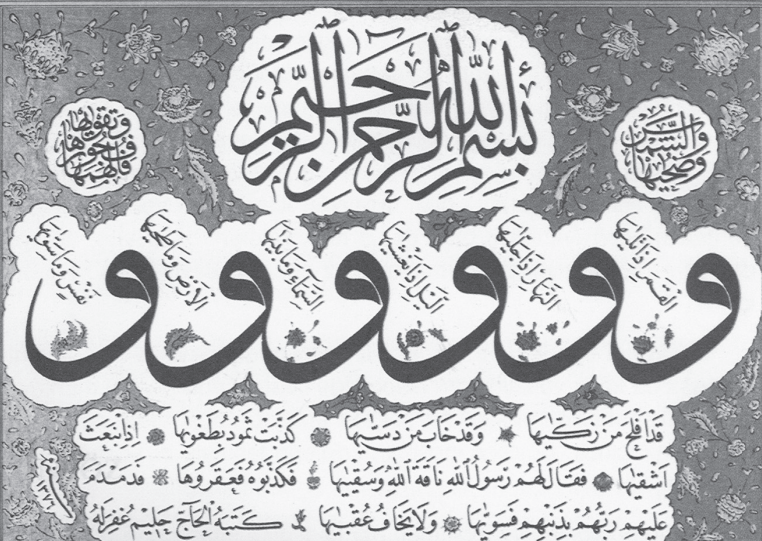 بِسْمِ اللّٰهِ الرَّحْمٰنِ الرَّحِيمِ
وَالشَّمْسِ وَضُحٰيهَا
وَ الْقَمَرِ اِذَا تَلٰيهَا
وَ النَّهَارِ اِذَا جَلّٰيهَا
وَ الَّيْلِ اِذَا يَغْشٰيهَا
وَ السَّمَاءِ وَمَا بَنٰيهَا
وَ الْاَرْضِ وَمَا طَحٰيهَا
وَ نَفْسٍ وَمَا سَوّٰيهَا
فَاَلْهَمَهَا فُجُورَهَا وَتَقْوٰيهَا
قَدْ اَفْلَحَ مَنْ زَكّٰيهَا وَقَدْ خَابَ مَنْ دَسّٰيهَا كَذَّبَتْ ثَمُودُ بِطَغْوٰيهَا اِذِ انْبَعَثَ
اَشْقٰيهَا فَقَالَ لَهُمْ رَسُولُ اللّٰهِ نَاقَةَ اللّٰهِ وَسُقْيٰيهَا فَكَذَّبُوهُ فَعَقَرُوهَا فَدَمْدَمَ
عَلَيْهِمْ رَبُّهُمْ بِذَنْبِهِمْ فَسَوّٰيهَا وَلَا يَخَافُ عُقْبٰيهَا كَتَبَهُ الْحَاجّ حَلِيم غُفِرَ لَهُ
سنة ١٣٧٦